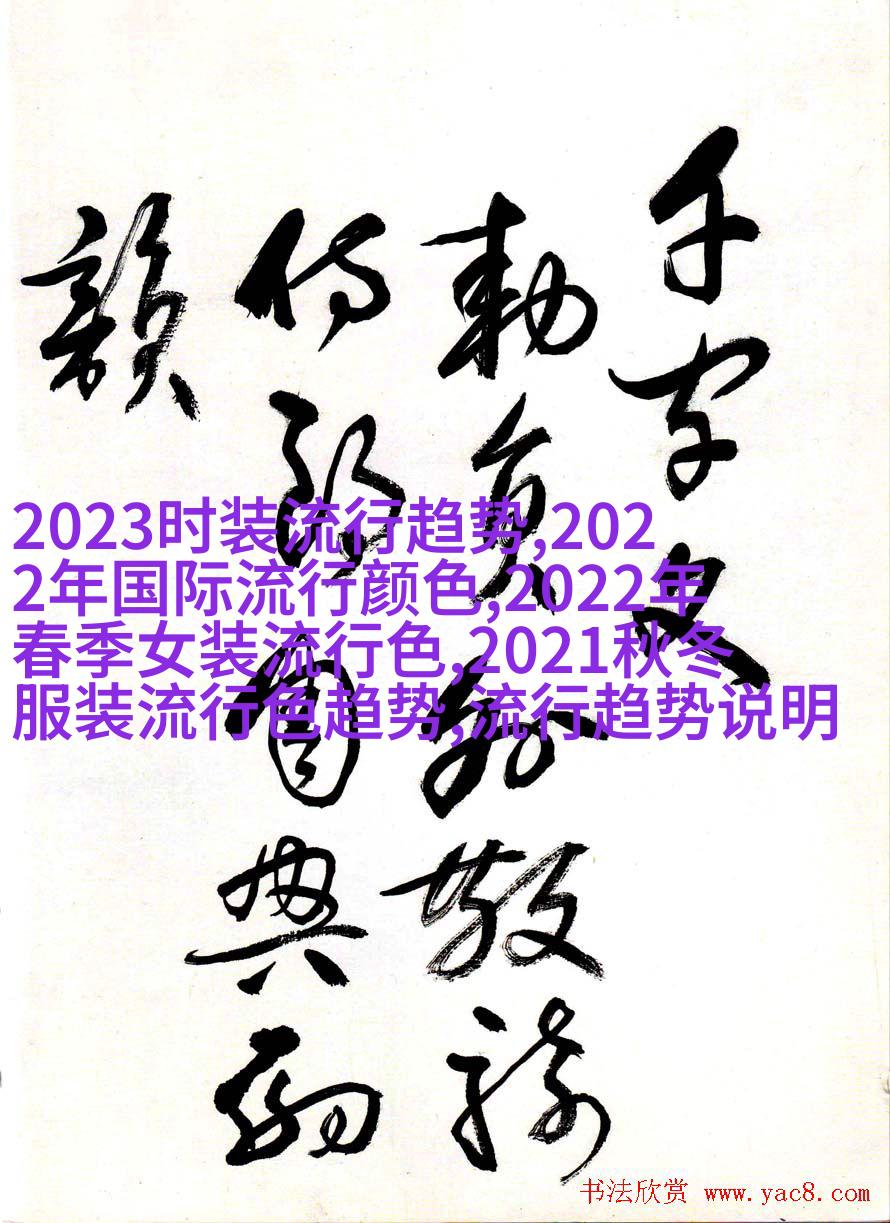 千字文
勅員外散騎
侍郎周興嗣
韻
2023时装流行趋势,202
2年国际流行颜色,2022年
春季女装流行色,2021秋冬
服装流行色趋势,流行趋势说明
书法欣赏 www.yac8.com